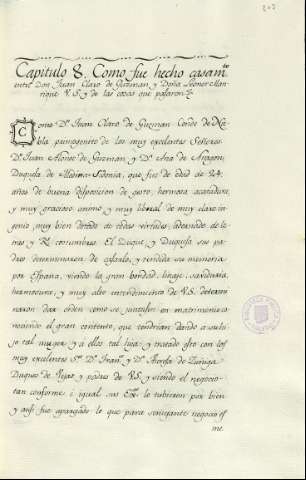 Capitulo 8. Como fue hecho casam.to
entre Don Juan Claro de Guzman, y Doña Leonor Man-
rique V.S. y de las cosas que pasaron &.
Como D.n Juan Claro de Guzman Conde de Nie-
bla primogenito de los muy excelentes Señores
D.n Juan Alonso de Guzman y D.a Ana de Aragon
Duques de Medina Sidonia, que fue de edad de 24
años de buena disposicion de gesto, hermosa acatadura,
y muy gracioso animo y muy liberal de muy claro in-
genio, muy bien dotado de todas virtudes, adornado de le-
tras y R.s costumbres. El Duque y Duquesa sus pa-
dres determinaron de casarlo, y tendida su memoria
por España, viendo la gran bondad, linage, sabiduria,
hermosura, y muy alto entendimiento de V.S. determi-
naron dar orden como se juntasen en matrimonio
teniendo el gran contento, que tendrian dando a su hi-
jo tal muger y a ellos tal hija: y tratado esto con los
muy excelentes S.res D.n Fran.co y D.a Teresa de Zuñiga
Duques de Bejar y padres de V.S. y viendo el negocio
tan conforme i igual sus Ex.as lo tubieron por bien
y ansi fue apuntado lo que para semejante negocio es
me.